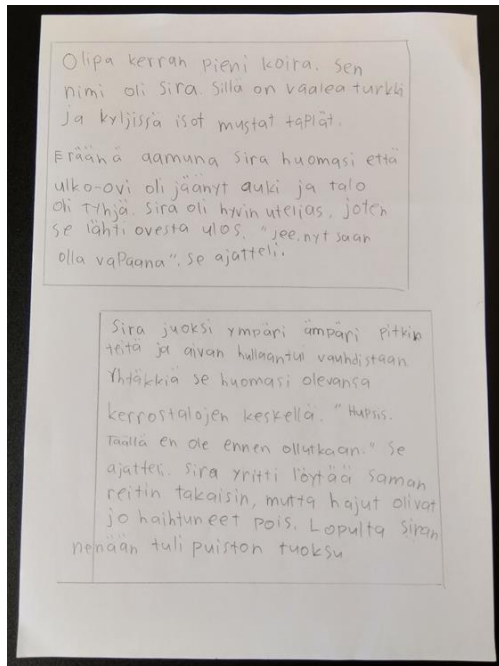 Olipa kerran pieni koira. Sen
nimi oli Sira. Sillä on vaalea turkki
ja kyljissä isot mustat täplät.
Eräänä aamuna Sira huomasi että
ulko-ovi oli jäänyt auki ja talo
oli tyhjä. Sira oli hyvin utelias, joten
se lähti ovesta ulos. "Jee, nyt saan
olla vapaana". se ajatteli.
Sira juoksi ympäri ämpäri pitkin
teitä ja aivan hullaantui vauhdistaan.
Yhtäkkiä se huomasi olevansa
kerrostalojen keskellä. "Hupsis.
Täällä en ole ennen ollutkaan." Se
ajatteli. Sira yritti löytää saman
reitin takaisin, mutta hajut olivat
jo haihtuneet pois. Lopulta Siran
nenään tuli puiston tuoksu